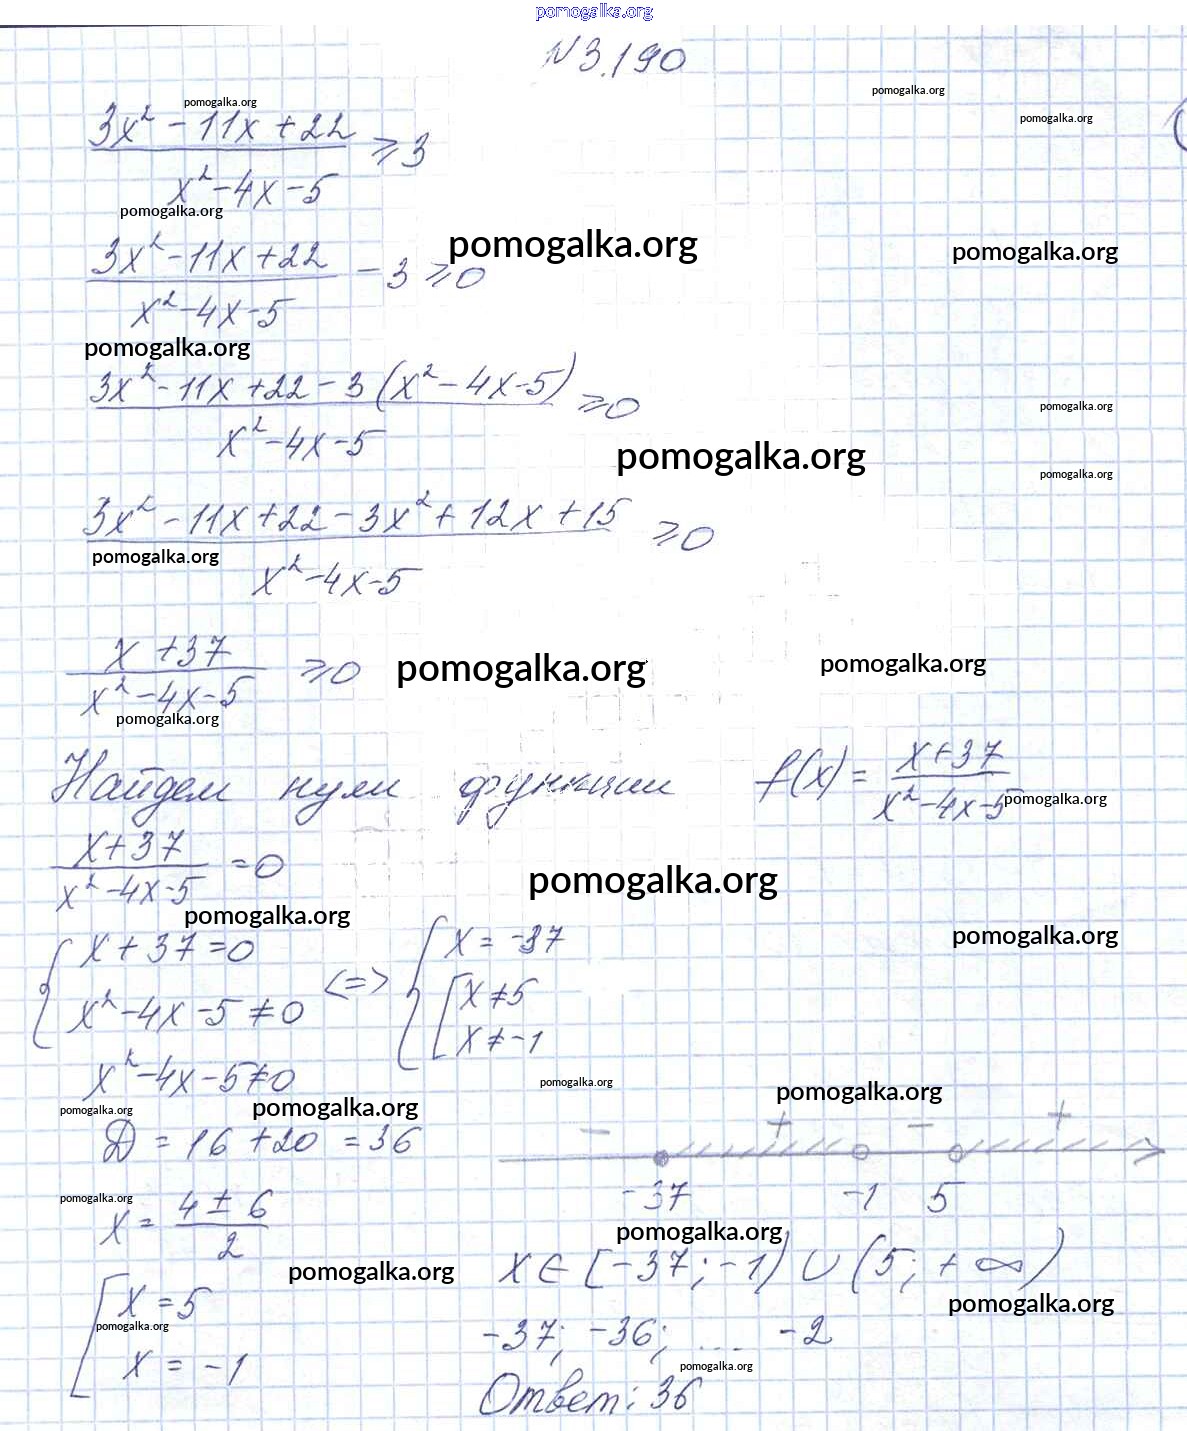 pomogalka.org
N3.190
pomogalka.org
pomogalka.org
pomogalka.org
3x² - 11x + 22
⩾ 3
x² - 4x - 5
pomogalka.org
3x² - 11x + 22
- 3 ⩾ 0
x² - 4x - 5
pomogalka.org
pomogalka.org
pomogalka.org
3x² - 11x + 22 - 3 (x² - 4x - 5)
⩾ 0
x² - 4x - 5
pomogalka.org
pomogalka.org
pomogalka.org
3x² - 11x + 22 - 3x² + 12x + 15
⩾ 0
x² - 4x - 5
pomogalka.org
x + 37
⩾ 0
x² - 4x - 5
pomogalka.org
pomogalka.org
pomogalka.org
Найдем нули функции f(x) = x + 37
x² - 4x - 5
pomogalka.org
x + 37
= 0
x² - 4x - 5
pomogalka.org
pomogalka.org
pomogalka.org
{ x + 37 = 0
x² - 4x - 5 ≠ 0
<=>
{ x = -37
[ x ≠ 5
x ≠ -1
x² - 4x - 5 ≠ 0
pomogalka.org
pomogalka.org
pomogalka.org
pomogalka.org
Д = 16 + 20 = 36
- + - +
-37 -1 5
pomogalka.org
x = 4 ± 6
2
pomogalka.org
pomogalka.org
x ∈ [-37; -1) ∪ (5; +∞)
pomogalka.org
[ x = 5
pomogalka.org
x = -1
-37; -36; ... -2
pomogalka.org
Ответ: 36